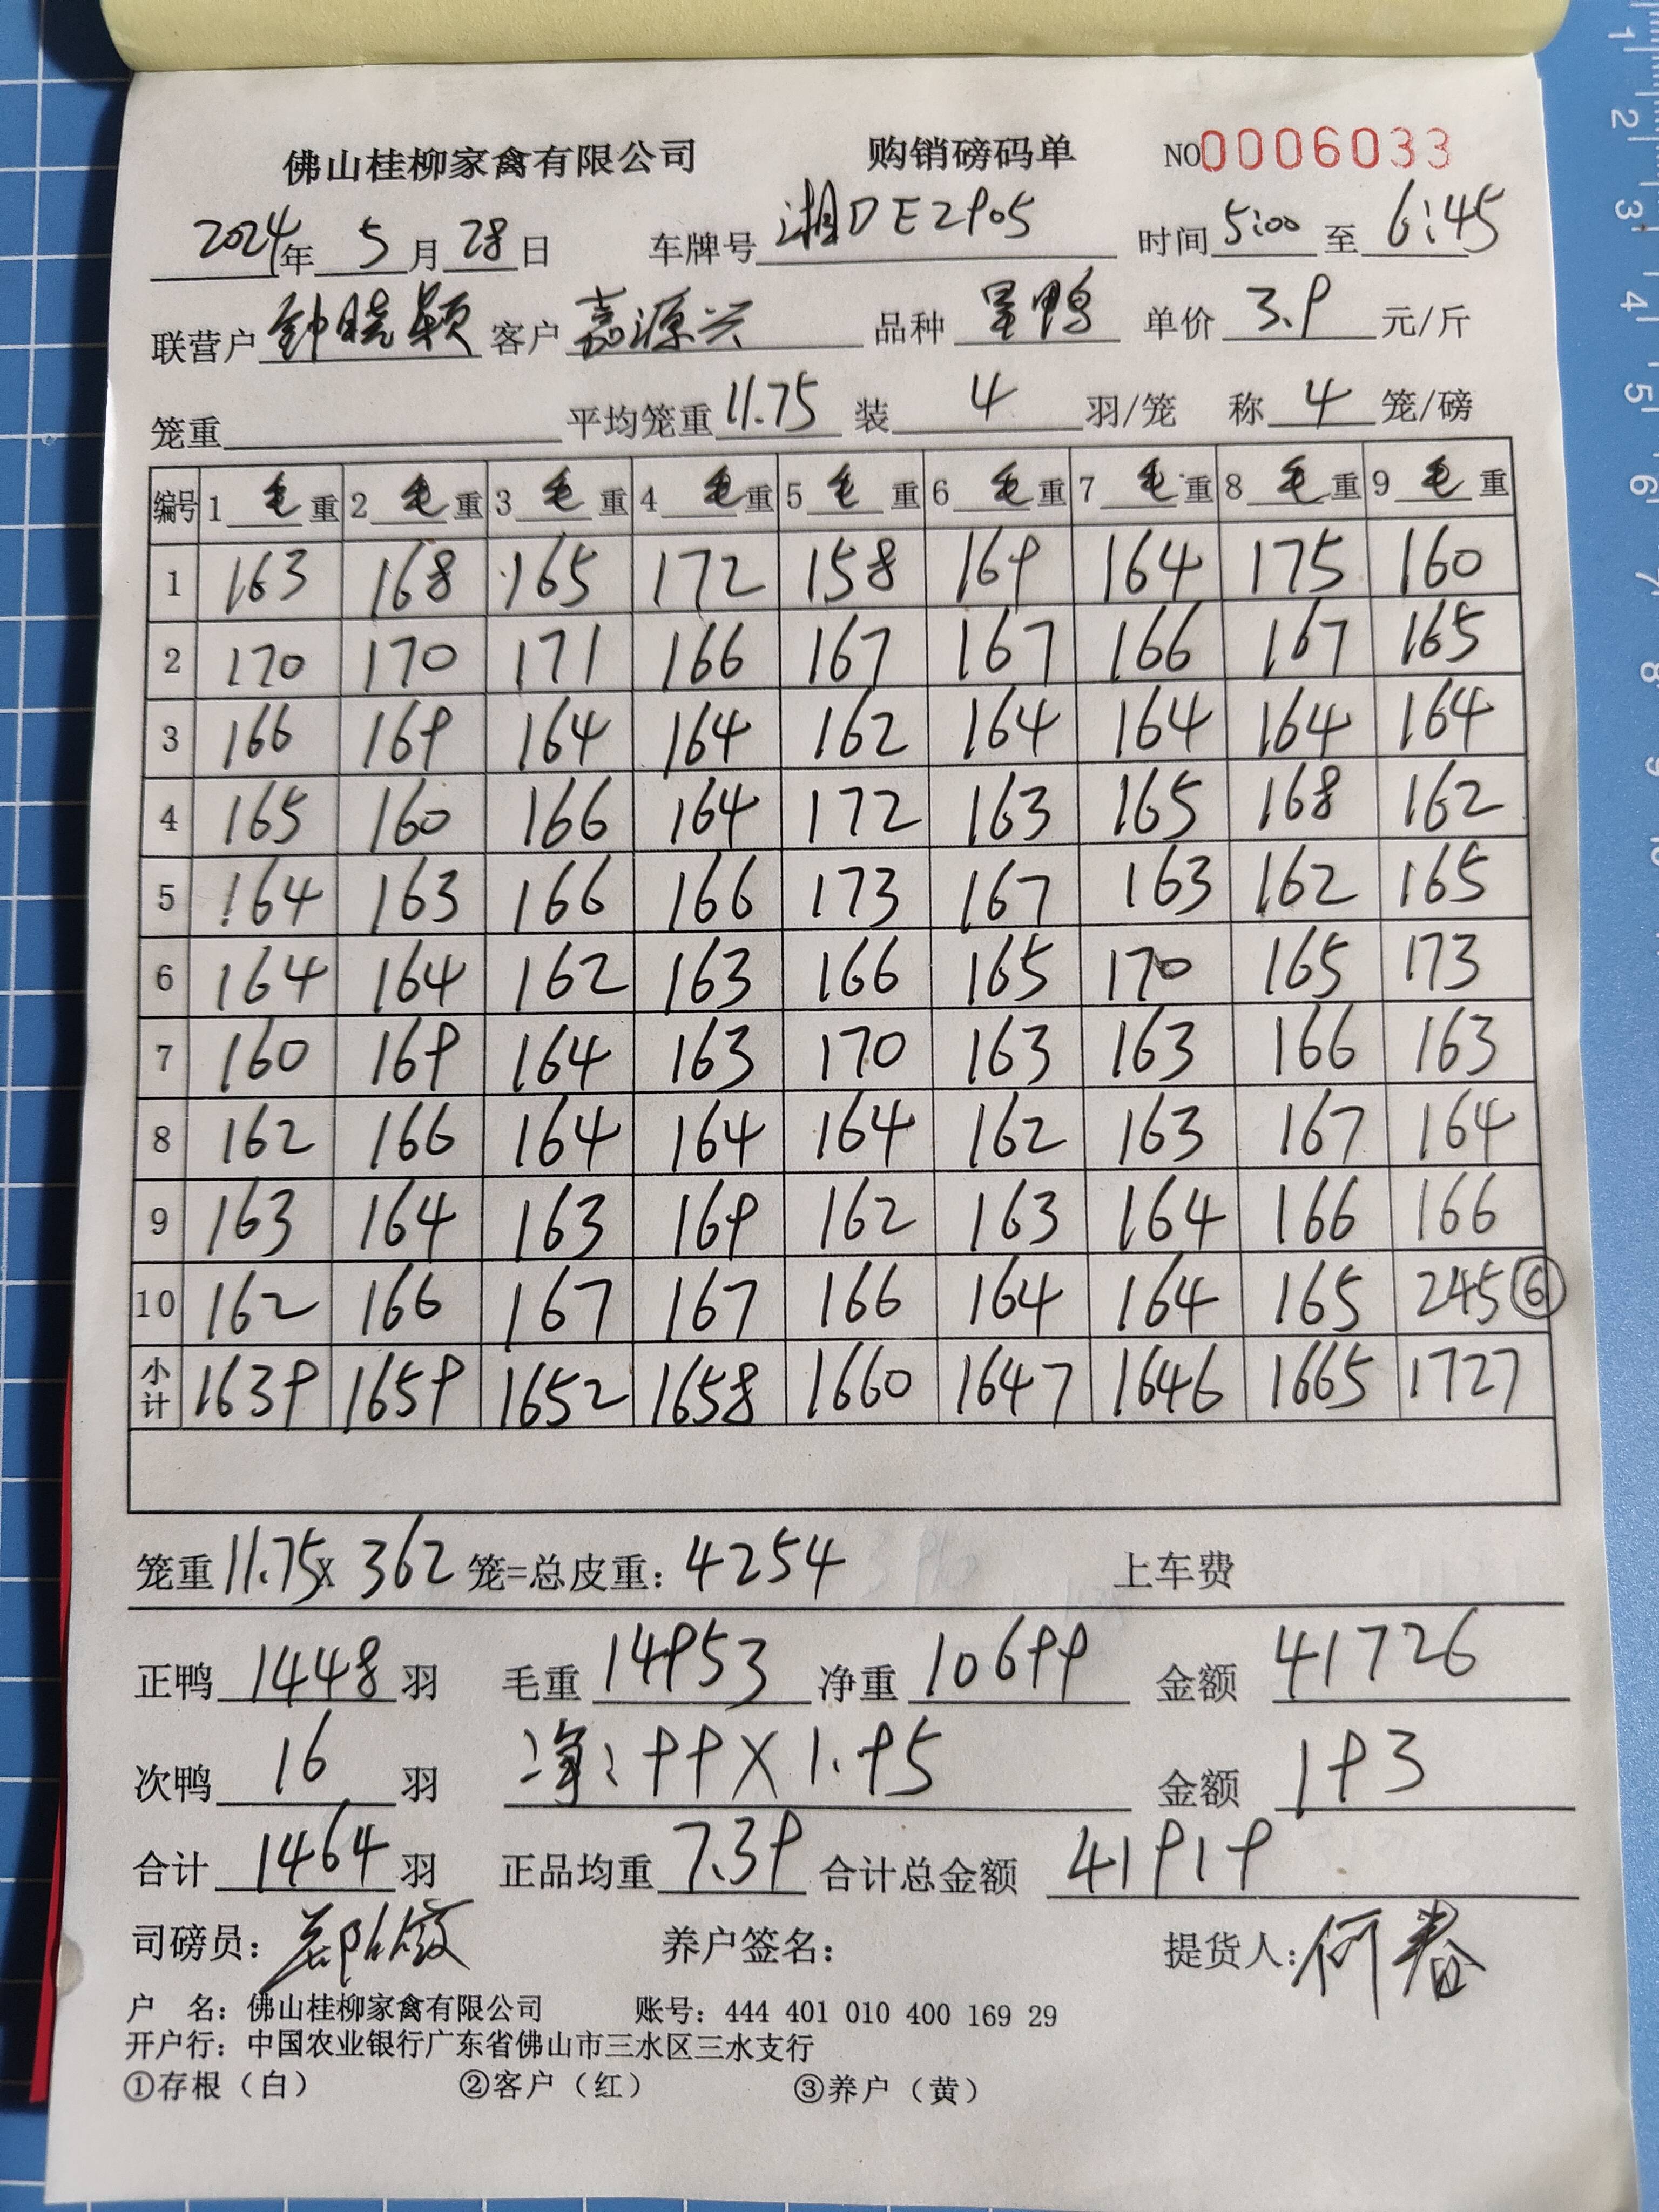 佛山桂柳家禽有限公司 购销磅码单 NO0006033
2024年 5月28日 车牌号 湘DE2905 时间 5:00 至 6:45
联营户 钟晓颖 客户 嘉源兴 品种 鸭 单价 3.9 元/斤
笼重 平均笼重 11.75 装 4 羽/笼 称 4 笼/磅
编号 1 毛重 2 毛重 3 毛重 4 毛重 5 毛重 6 毛重 7 毛重 8 毛重 9 毛重
1 163 168 165 172 158 169 164 175 160
2 170 170 171 166 167 167 166 167 165
3 166 169 164 164 162 164 164 164 164
4 165 160 166 164 172 163 165 168 162
5 164 163 166 166 173 167 163 162 165
6 164 164 162 163 166 165 170 165 173
7 160 169 164 163 170 163 163 166 163
8 162 166 164 164 164 162 163 167 164
9 163 164 163 169 162 163 164 166 166
10 162 166 167 167 166 164 164 165 245 ⑥
小计 1639 1659 1652 1658 1660 1647 1646 1665 1727
笼重 11.75 x 362 笼=总皮重: 4254 上车费
正鸭 1448 羽 毛重 14953 净重 10699 金额 41726
次鸭 16 羽 净: 99 X 1.95 金额 193
合计 1464 羽 正品均重 7.39 合计总金额 41919
司磅员: 养户签名: 提货人: 何春
户 名: 佛山桂柳家禽有限公司 账号: 444 401 010 400 169 29
开户行: 中国农业银行广东省佛山市三水区三水支行
①存根（白） ②客户（红） ③养户（黄）
1
2
3
4
5
6
7
8
9
10